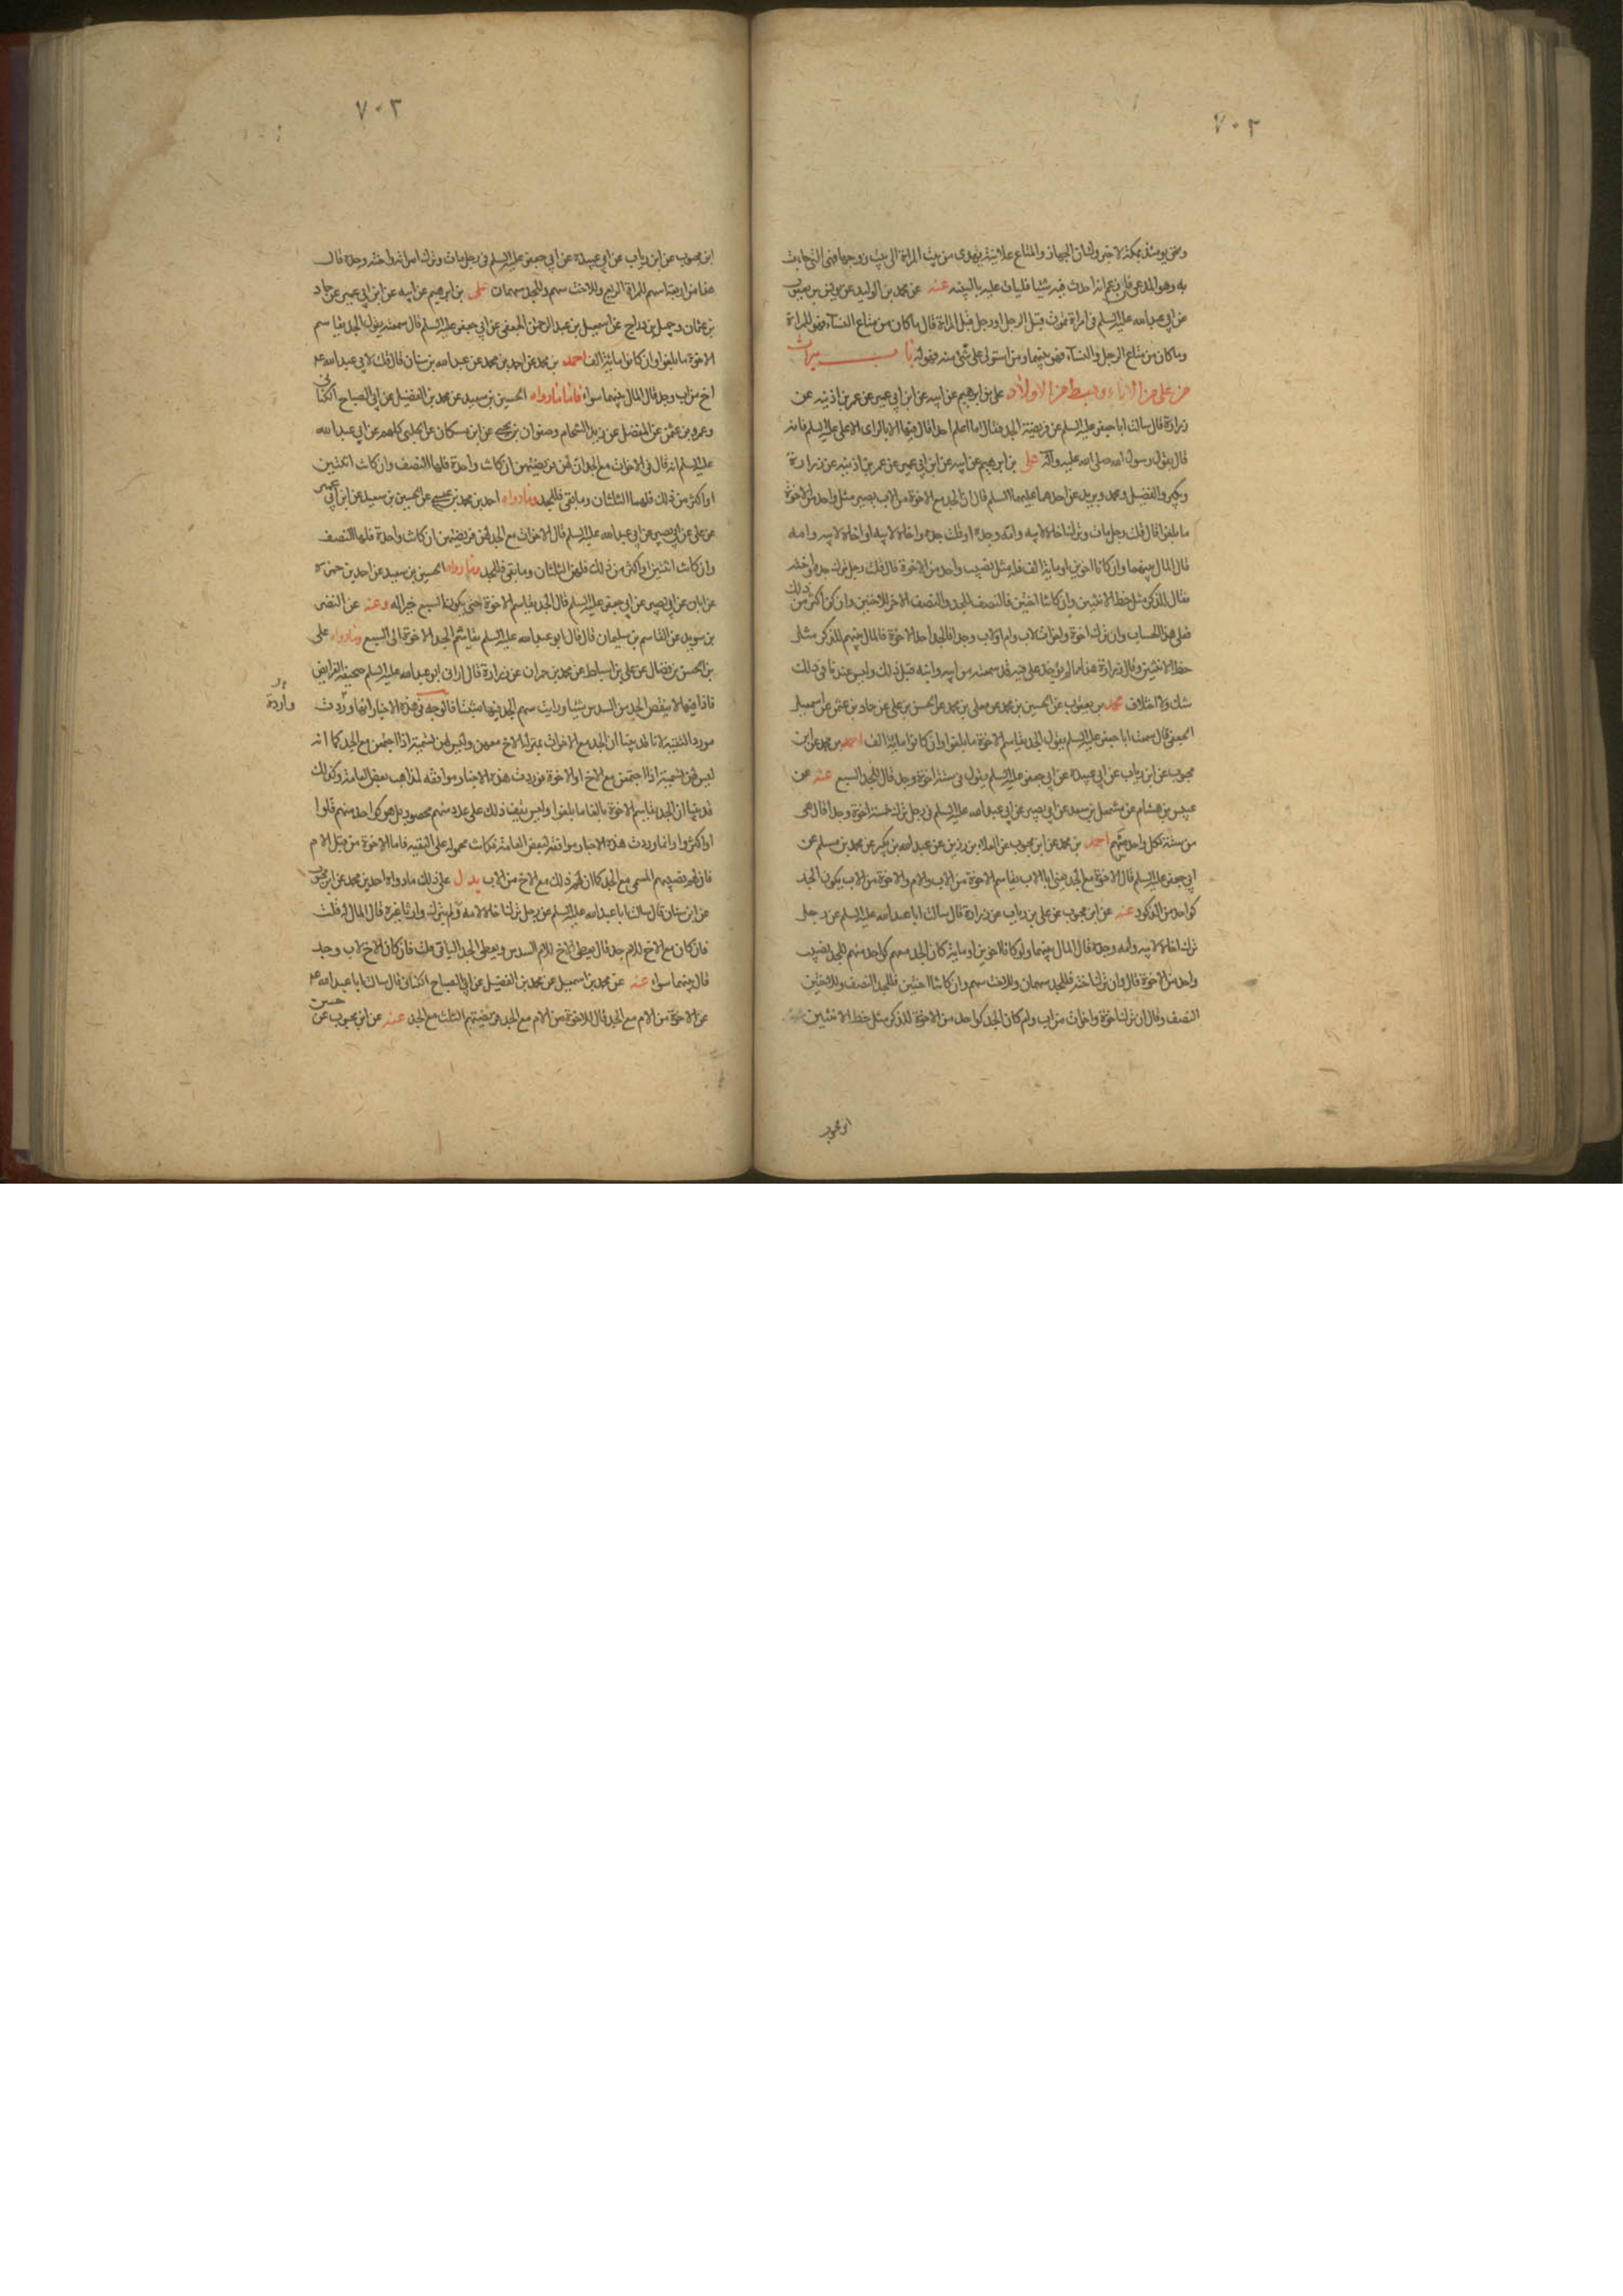 ٧٠٢
ونحن يومئذ بمكة لاخبروك ان الجهاز والمتاع علانية يهدى من بيت المراة الى بيت زوجها فهى التى جاءت
به وهو المدعى فان زعم انه احدث فيه شيئا فليات عليه بالبينه عنه عن محمد بن الوليد عن يونس بن يعقوب
عن ابى عبدالله عليه السلم فى امراة تموت قبل الرجل او رجل قبل المراة قال ما كان من متاع النساء فهو للمراة
وما كان من متاع الرجل والنساء فهو بينهما ومن استولى على شئ منه فهو له باب ميراث
من على من الاباء وهبط من الاولاد على بن ابرهيم عن ابيه عن ابن ابى عمير عن عمر بن اذينه عن
زرارة قال سالت ابا جعفر عليه السلم عن فريضة الجد فقال ما اعلم احدا قال فيها الا بالراى الا على عليه السلم فانه
قال بقول رسول الله صلى الله عليه وآله على بن ابرهيم عن ابيه عن ابن ابى عمير عن عمر بن اذينه عن زرارة
وبكير والفضيل ومحمد وبريد عن احدهما عليهما السلم قال ان الجد مع الاخوة من الاب يصير مثل واحد من الاخوة
ما بلغوا قال قلت رجل مات وترك اخاه لابيه وامه وجده او قلت جده واخاه لابيه او اخاه لابيه وامه
قال المال بينهما وان كانا اخوين او ماية الف فله مثل نصيب واحد من الاخوة قال قلت رجل ترك جده واخته
فقال للذكر مثل حظ الانثيين وان كانتا اختين فالنصف للجد والنصف الاخر للاختين وان كن اكثر من ذلك
فعلى هذا الحساب وان ترك اخوة واخوات لاب وام او لاب وجدا فالجد احد الاخوة فالمال بينهم للذكر مثل
حظ الانثيين وقال زرارة هذا مما لم يؤخذ على فيه قد سمعته من ابيه ومنه قبل ذلك وليس عندنا فى ذلك
شك ولا اختلاف محمد بن يعقوب عن الحسين بن محمد عن معلى بن محمد عن الحسن بن على عن حماد بن عثمن عن اسمعيل
الجعفى قال سمعت ابا جعفر عليه السلم يقول الجد يقاسم الاخوة ما بلغوا وان كانوا ماية الف احمد بن محمد عن ابن
محبوب عن ابن رياب عن ابى عبيدة عن ابى جعفر عليه السلم يقول فى ستة اخوة وجد قال للجد السبع عنه عن
عبيس بن هشام عن مشمعل بن سعد عن ابى بصير عن ابى عبدالله عليه السلم فى رجل ترك خمسة اخوة وجدا قال هى
من ستة لكل واحد سهم احمد بن محمد عن ابن محبوب عن العلاء بن رزين عن عبدالله بن بكير عن محمد بن مسلم عن
ابى جعفر عليه السلم قال الاخوة مع الجد يعنى ابا الاب يقاسم الاخوة من الاب والام والاخوة من الاب يكون الجد
كواحد من الذكور عنه عن ابن محبوب عن على بن رياب عن زرارة قال سالت ابا عبدالله عليه السلم عن رجل
ترك اخاه لابيه وامه وجده قال المال بينهما ولو كانا اخوين او ماية كان الجد معهم كواحد منهم للجد نصيب
واحد من الاخوة قال وان ترك اخته فللجد سهمان وللاخت سهم وان كانتا اختين فللجد النصف وللاختين
النصف وقال ان ترك اخوة واخوات من اب وام كان الجد كواحد من الاخوة للذكر مثل حظ الانثيين عنه
٧٠٣
ابن محبوب عن ابن رياب عن ابى عبيدة عن ابى جعفر عليه السلم فى رجل مات وترك امراته واخته وجده قال
هذا من اربعة اسهم للمراة الربع وللاخت سهم وللجد سهمان على بن ابرهيم عن ابيه عن ابن ابى عمير عن حماد
بن عثمان وجميل بن دراج عن اسمعيل بن عبدالرحمن الجعفى عن ابى جعفر عليه السلم قال سمعته يقول الجد يقاسم
الاخوة ما بلغوا وان كانوا ماية الف احمد بن محمد عن احمد بن محمد عن عبدالله بن سنان قال قلت لابى عبدالله ع
اخ من اب وجد قال المال بينهما سواء فاما ما رواه الحسين بن سعيد عن محمد بن الفضيل عن ابى الصباح الكنانى
وعمرو بن عثمن عن المفضل عن زيد الشحام وصفوان بن يحيى عن ابن مسكان عن الحلبى كلهم عن ابى عبدالله
عليه السلم انه قال فى الاخوات مع الجد ان لهن فريضتهن ان كانت واحدة فلها النصف وان كانت اثنتين
او اكثر من ذلك فلهما الثلثان وما بقى فللجد وما رواه احمد بن محمد بن عيسى عن الحسين بن سعيد عن ابن ابى عمير
عن على عن ابى بصير عن ابى عبدالله عليه السلم قال الاخوات مع الجد لهن فريضتهن ان كانت واحدة فلها النصف
وان كانت اثنتين او اكثر من ذلك فلهن الثلثان وما بقى فللجد وما رواه الحسين بن سعيد عن احمد بن حمزه
عن ابان عن ابى بصير عن ابى جعفر عليه السلم قال الجد يقاسم الاخوة حتى يكون السبع خيرا له وعنه عن النضر
بن سويد عن القاسم بن سليمان قال قال ابو عبدالله عليه السلم يقاسم الجد الاخوة الى السبع وما رواه على
بن الحسن بن فضال عن على بن اسباط عن محمد بن حمران عن زرارة قال ارانى ابو عبدالله عليه السلم صحيفة الفرايض
فاذا فيها لا ينقص الجد من السدس شيئا ورايت سهم الجد فيها مثبتا فالوجه فى هذه الاخبار انها وردت
واردة
مورد التقية لانا قد بينا ان الجد مع الاخوات بمنزلة الاخ معهن وليس لهن تسمية اذا اجتمعن مع الجد كما انه
ليس لهن تسمية اذا اجتمعن مع الاخ او الاخوة فوردت هذه الاخبار موافقه لمذاهب بعض العامة وكذلك
قد بينا ان الجد يقاسم الاخوة بالغا ما بلغوا وليس يقف ذلك على عدد منهم محصور بل هو كواحد منهم قلوا
او اكثروا وانما وردت هذه الاخبار موافقة لبعض العامة فكانت محموله على التقيه فاما الاخوة من قبل الام
فان لهم نصيبهم المسمى مع الجد كما ان لهم ذلك مع الاخ من الاب يدل على ذلك ما رواه احمد بن محمد عن ابن محبوب
عن ابن سنان قال سالت ابا عبدالله عليه السلم عن رجل ترك اخاه لامه ولم يترك وارثا غيره قال المال له قلت
فان كان مع الاخ للام جد قال يعطى الاخ للام السدس ويعطى الجد الباقى قلت فان كان الاخ لاب وجد
قال بينهما سواء عنه عن محمد بن اسمعيل عن محمد بن الفضيل عن ابى الصباح الكنانى قال سالت ابا عبدالله ع
عن الاخوة من الام مع الجد قال للاخوة من الام مع الجد فريضتهم الثلث مع الجد عنه عن ابن محبوب عن حسن